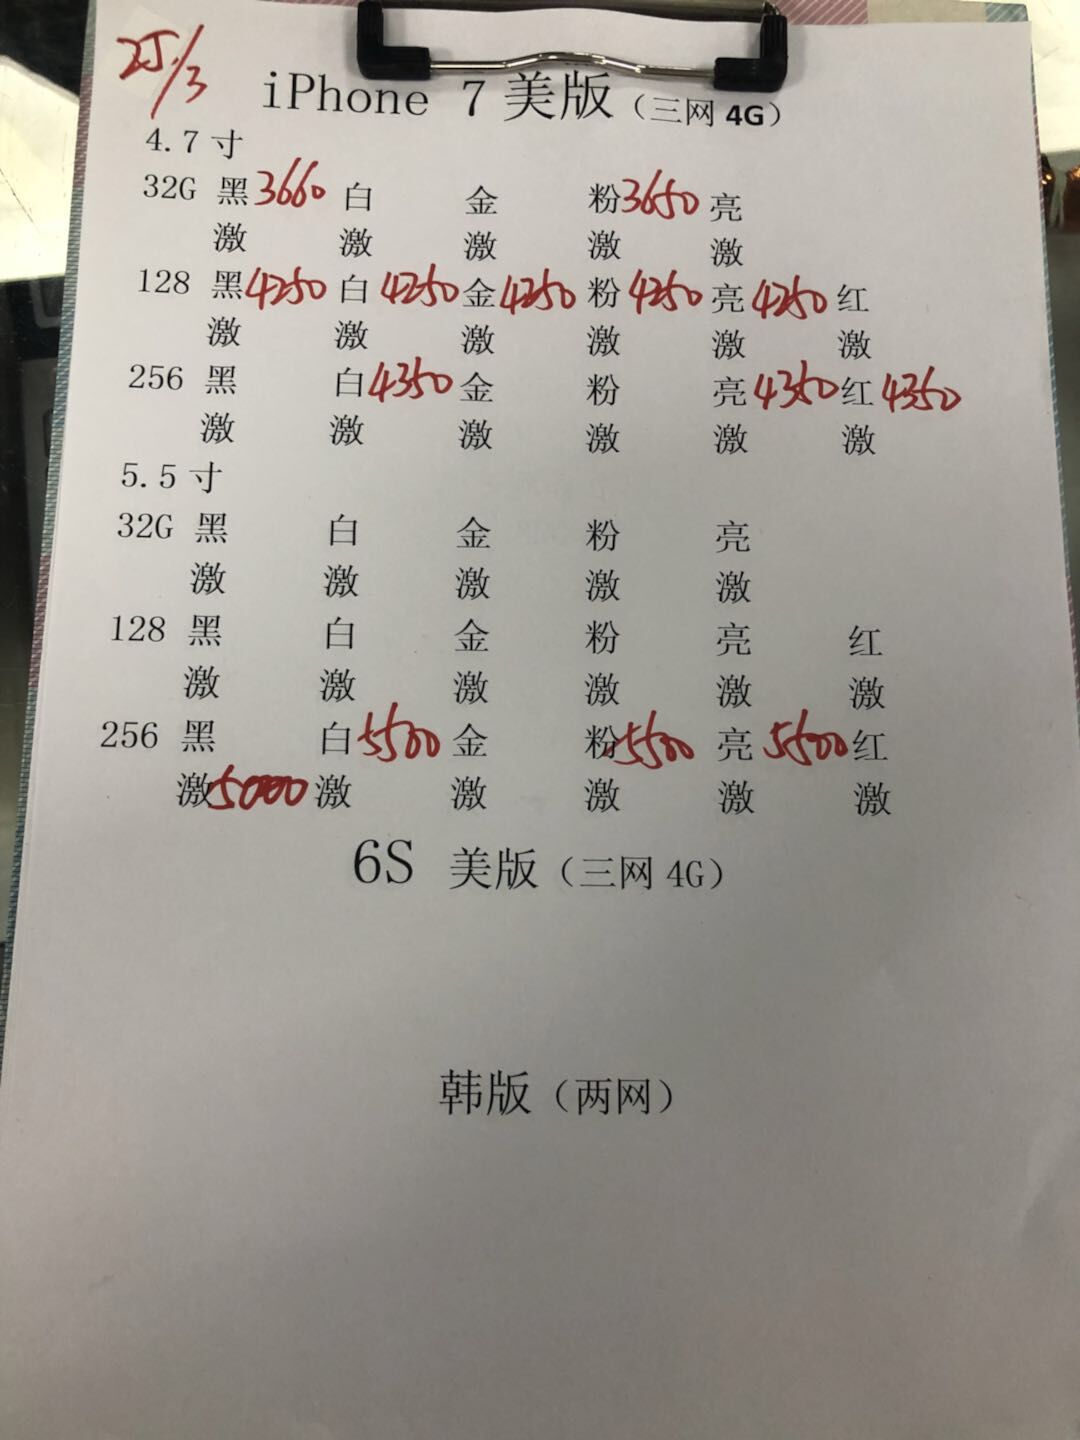 25/3
iPhone 7 美版（三网 4G）
4.7 寸
32G 黑 3660 白 金 粉 3650 亮
激 激 激 激 激
128 黑 4250 白 4250 金 4250 粉 4250 亮 4250 红
激 激 激 激 激 激
256 黑 白 4350 金 粉 亮 4350 红 4350
激 激 激 激 激 激
5.5 寸
32G 黑 白 金 粉 亮
激 激 激 激 激
128 黑 白 金 粉 亮 红
激 激 激 激 激 激
256 黑 白 5500 金 粉 5500 亮 5500 红
激 5000 激 激 激 激 激
6S 美版（三网 4G）
韩版（两网）